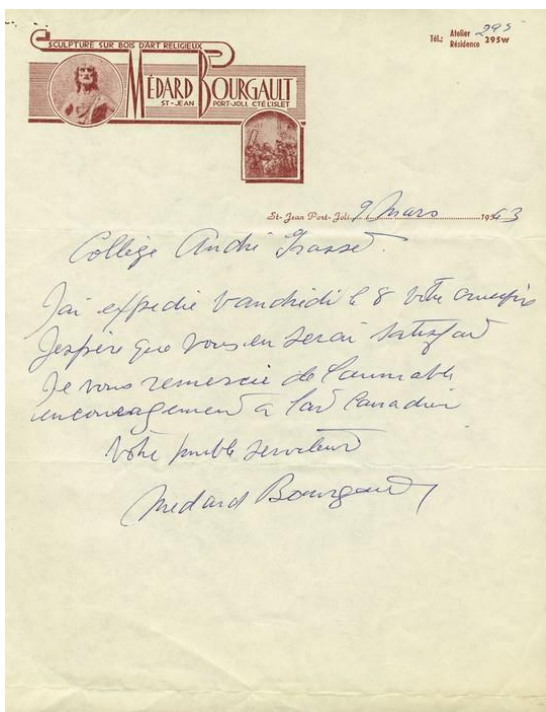 SCULPTURE SUR BOIS D'ART RELIGIEUX
MÉDARD BOURGAULT
ST-JEAN PORT-JOLI, CTÉ L'ISLET
Tél.: Atelier 295
Résidence 295w
St-Jean Port-Joli 9 Mars 1963
Collège André Grasset.
J'ai expédié vandredi le 8 votre crucifix
J'espère que vous en serai satisfait
Je vous remercie de l'aimable
encouragement a l'art Canadien
Votre humble serviteur
Medard Bourgault